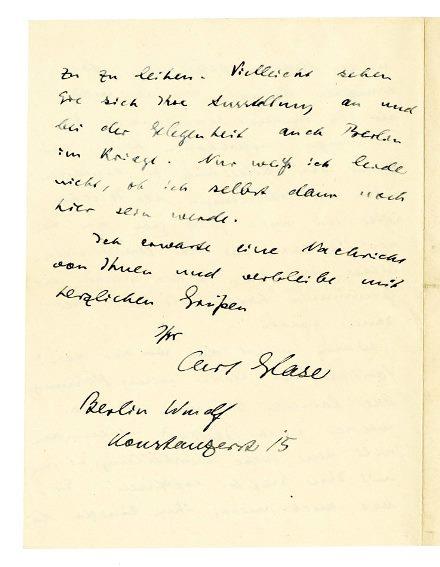 zu zu leihen. Vielleicht sehen
Sie sich Ihre Ausstellung an und
bei der Gelegenheit auch Berlin
im Kriege. Nur weiß ich leider
nicht, ob ich selbst dann noch
hier sein werde.
Ich erwarte eine Nachricht
von Ihnen und verbleibe mit
herzlichen Grüßen
Ihr
Curt Glaser
Berlin Wmdf
Konstanzerst 15